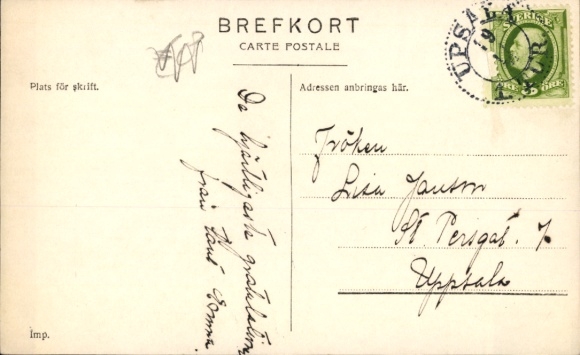 BREFKORT
CARTE POSTALE
Plats för skrift.
Adressen anbringas här.
UPSALA
SVERIGE
ÖRE 5 ÖRE
Da hjärtligaste gratulation
från Tant Emma.
Fröken
Lisa Janson
St. Persgat. 7
Uppsala
Imp.